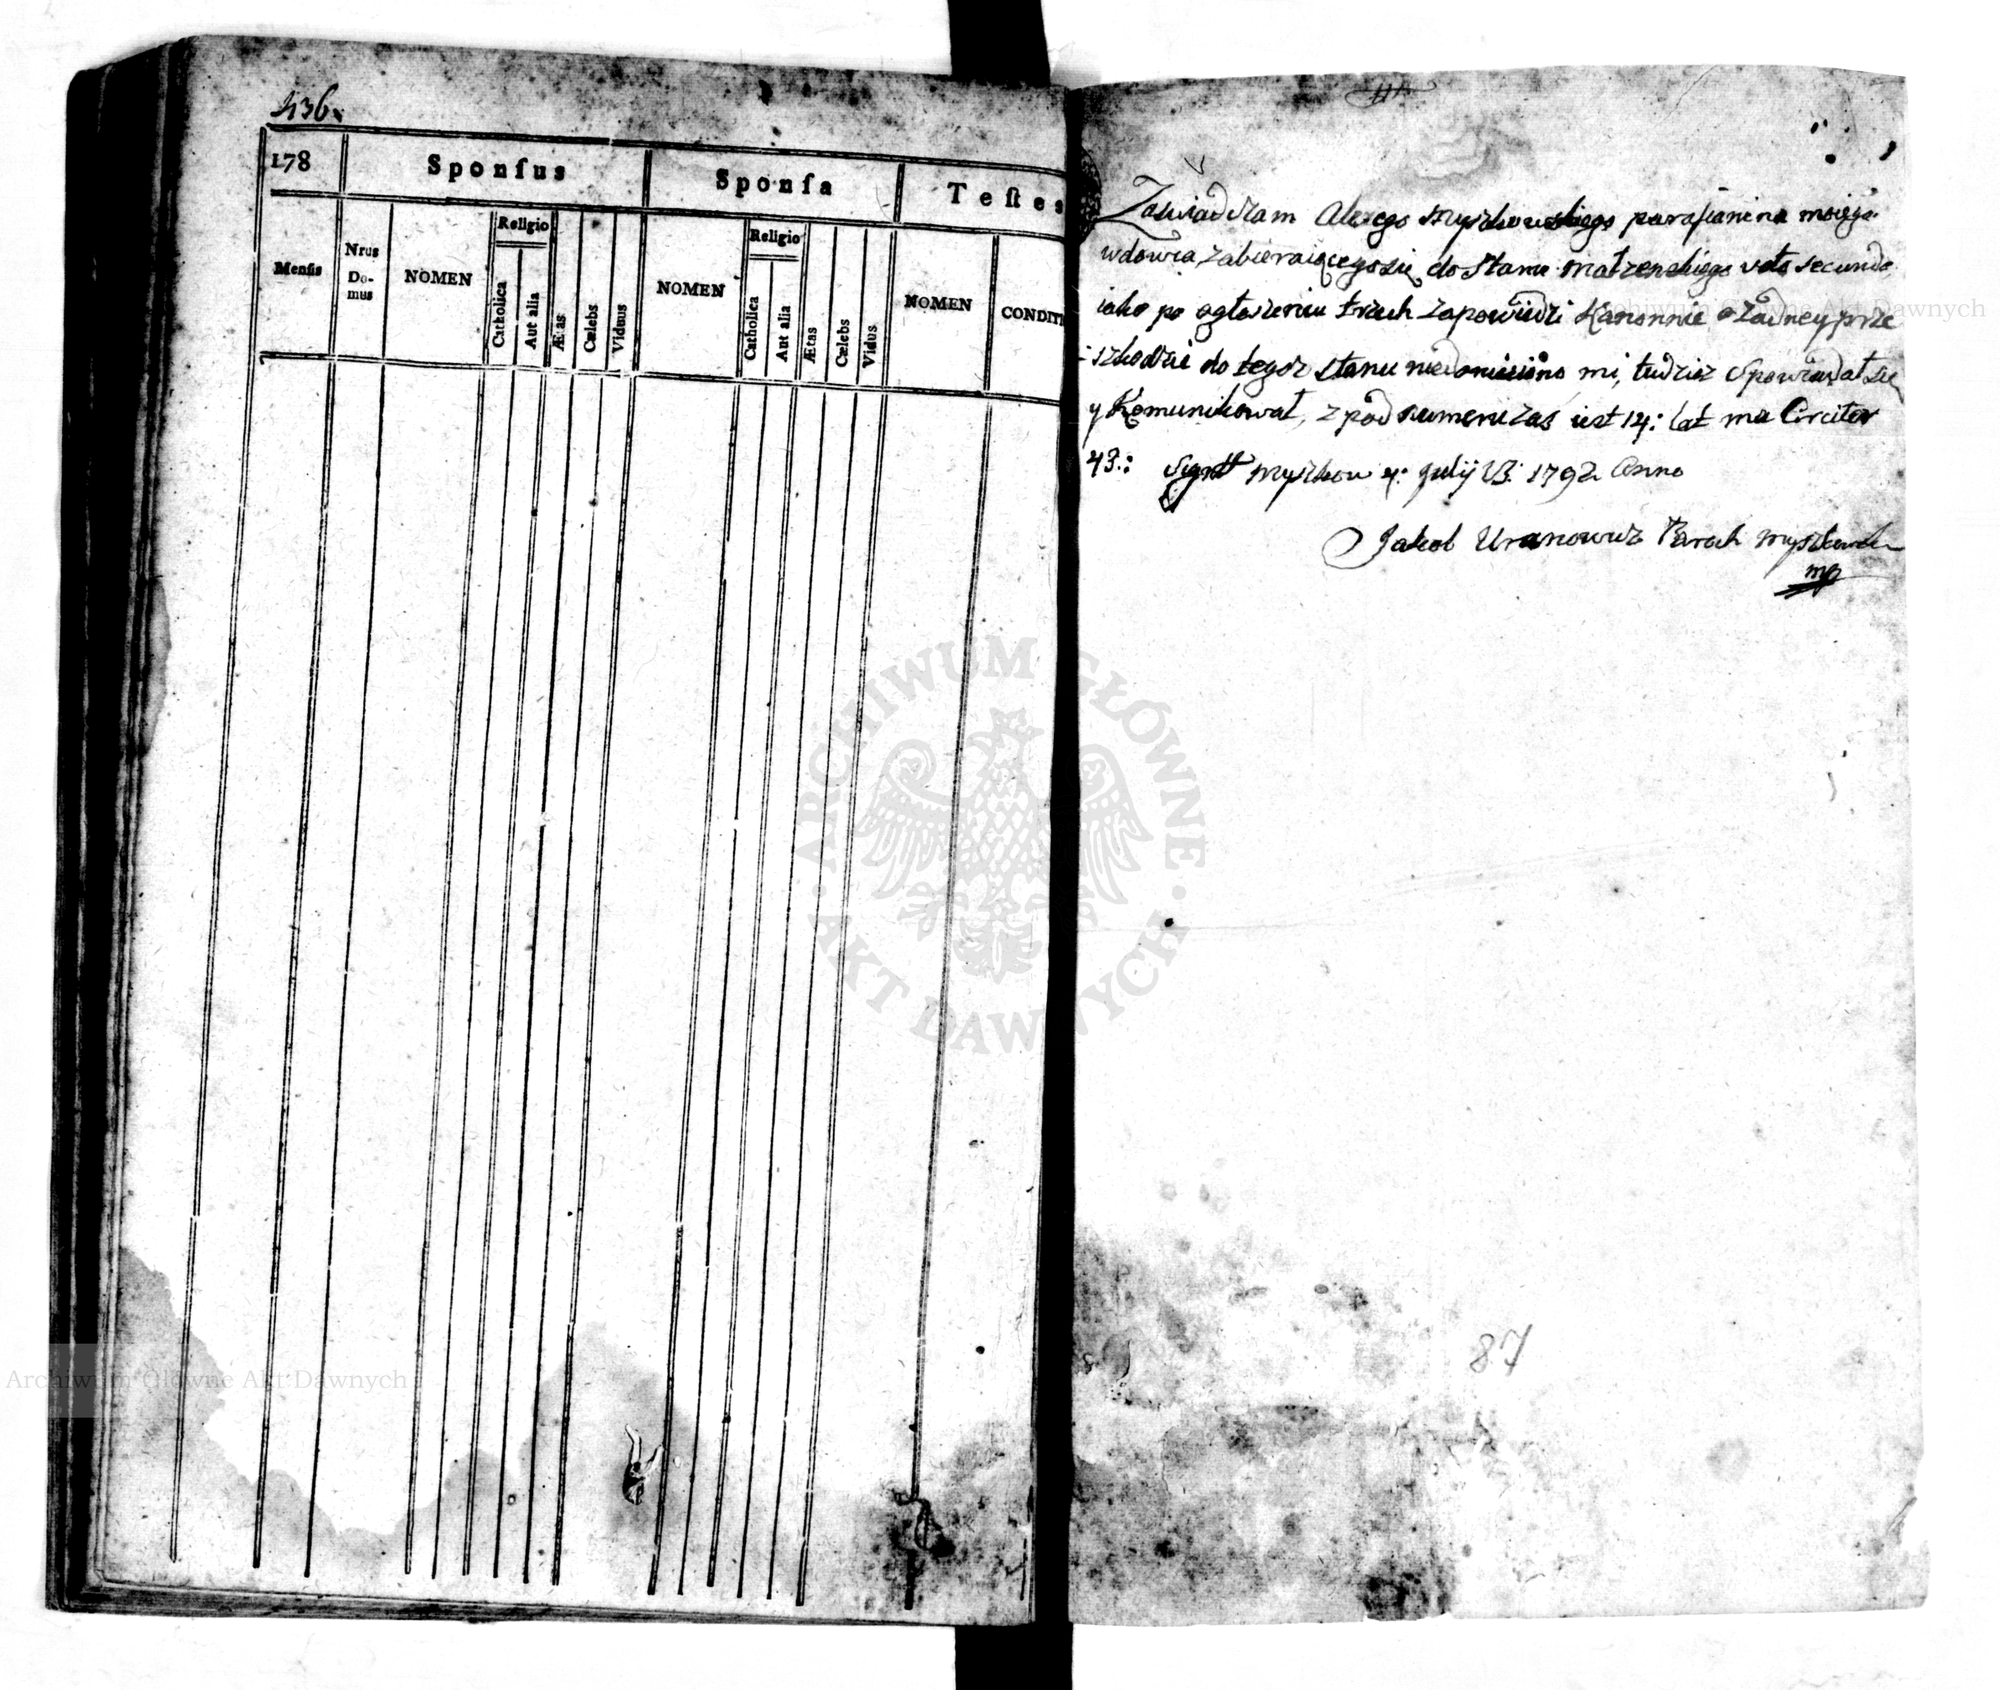 436.
178
Sponſus
Sponſa
Teſtes
Menſis
Nrus Domus
NOMEN
Religio
Catholica
Aut alia
Ætas
Cælebs
Viduus
NOMEN
Religio
Catholica
Aut alia
Ætas
Cælebs
Vidus
NOMEN
CONDITI
Zaswiadczam Alexego Myszkowskiego parafianina moiego
wdowca, zabieraiącego się do Stanu Małzenskiego voto secundo
iako po ogłoszeniu trzech zapowiedzi Kanonnie o żadney prze
szkodzie do tegoż stanu niedoniesiono mi, tudziesz Spowiadał się
y Komunikował, z pod numeru zas iest 14: lat ma Circiter
43.: Sygntt Myszkow 4: Julij V.S. 1792 Anno
Jakob Uranowicz Paroch Myszkowski
mp
87
ARCHIWUM GŁÓWNE AKT DAWNYCH
Archiwum Główne Akt Dawnych
Archiwum Główne Akt Dawnych